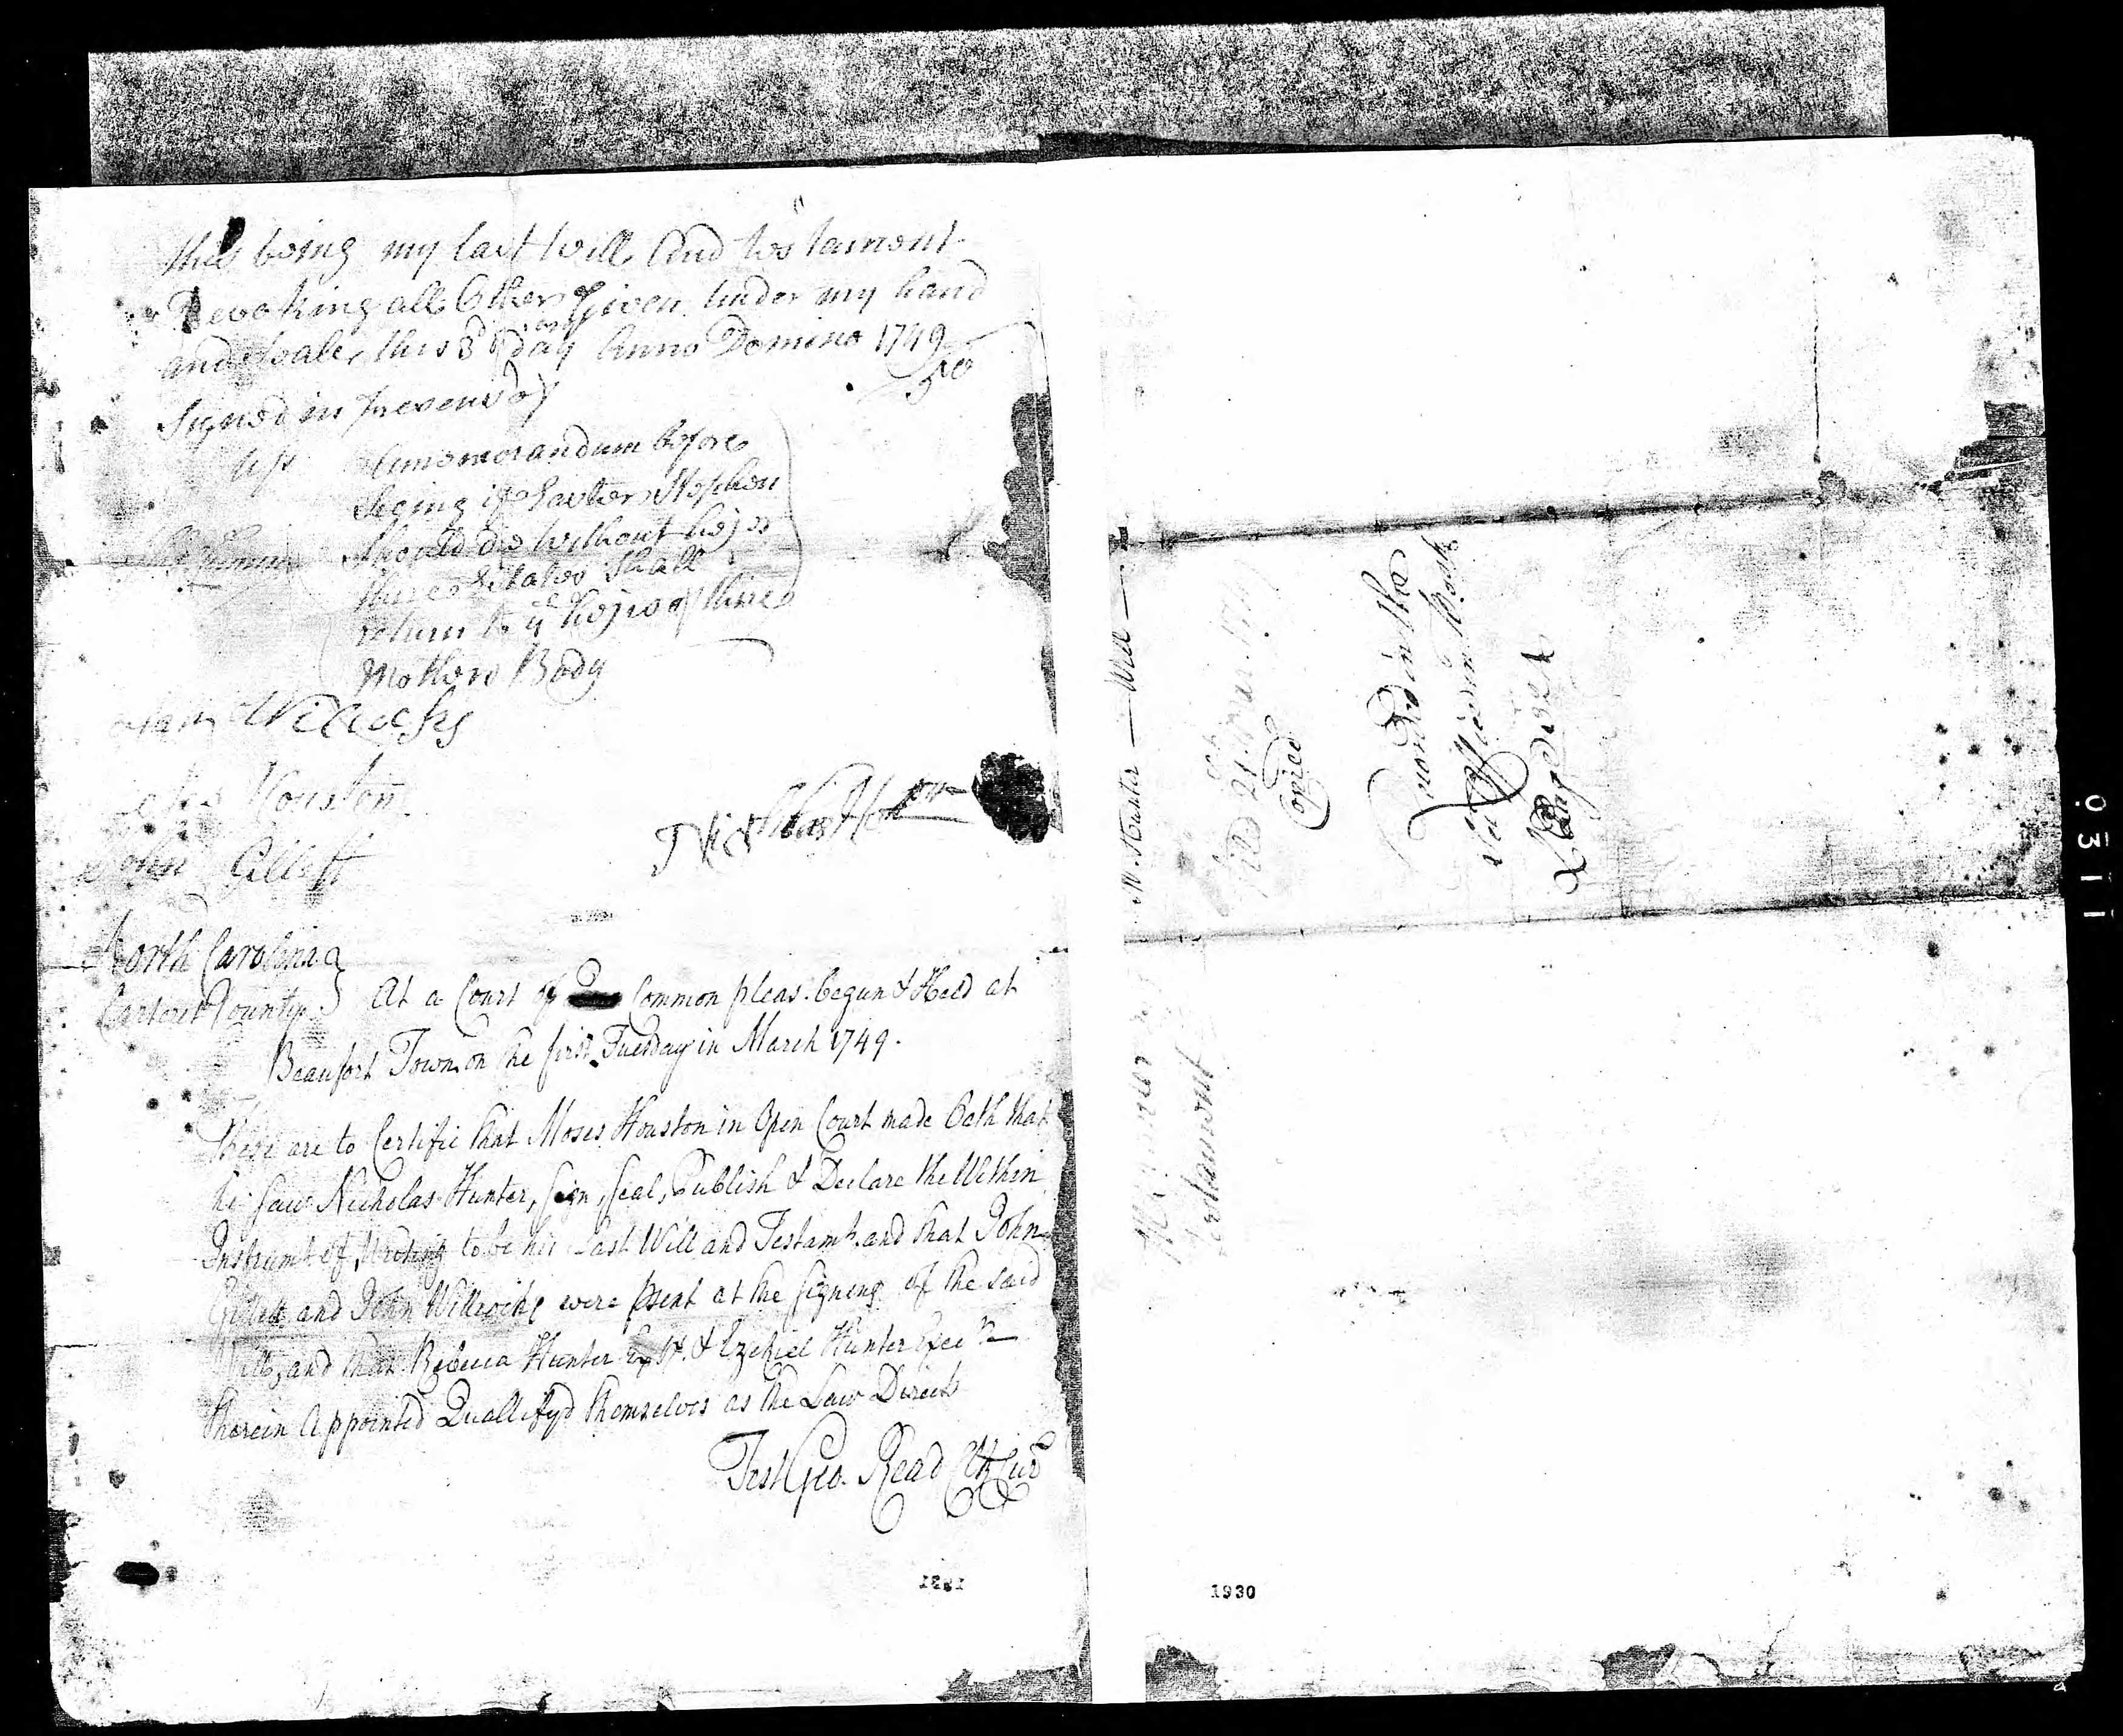 this being my last Will And testament
Revoking all Others Given under my hand
and Seale, this 3d day Anno Domino 1749
50
Signed in presens of
Memorandum before
Signing if Stephen
Should die without heirs
there Estates Shall
return to ye heirs of there
Mothers Body
Willcocks
Houston
John Gillett
Nicholas Hunter
North Carolina
Carteret County } At a Court of Common pleas begun & Held at
Beaufort Town on the first Tuesday in March 1749.
These are to Certifie that Moses Houston in Open Court made Oath that
he saw Nicholas Hunter, Sign, Seal, Publish & Declare the Within
Instrumt. of Writing to be his Last Will and Testamt. and that John
Gillett and John Willcocks were psent at the Signing of the said
Will, and that Rebecca Hunter & Ezekiel Hunter
therein Appointed Quallifyd themselves as the Law Directs
Test Geo. Read Clk Cur
1931
N. Hunter — Will —
Copied
Recorded in the
Secs Office in
Testament
1930
0311